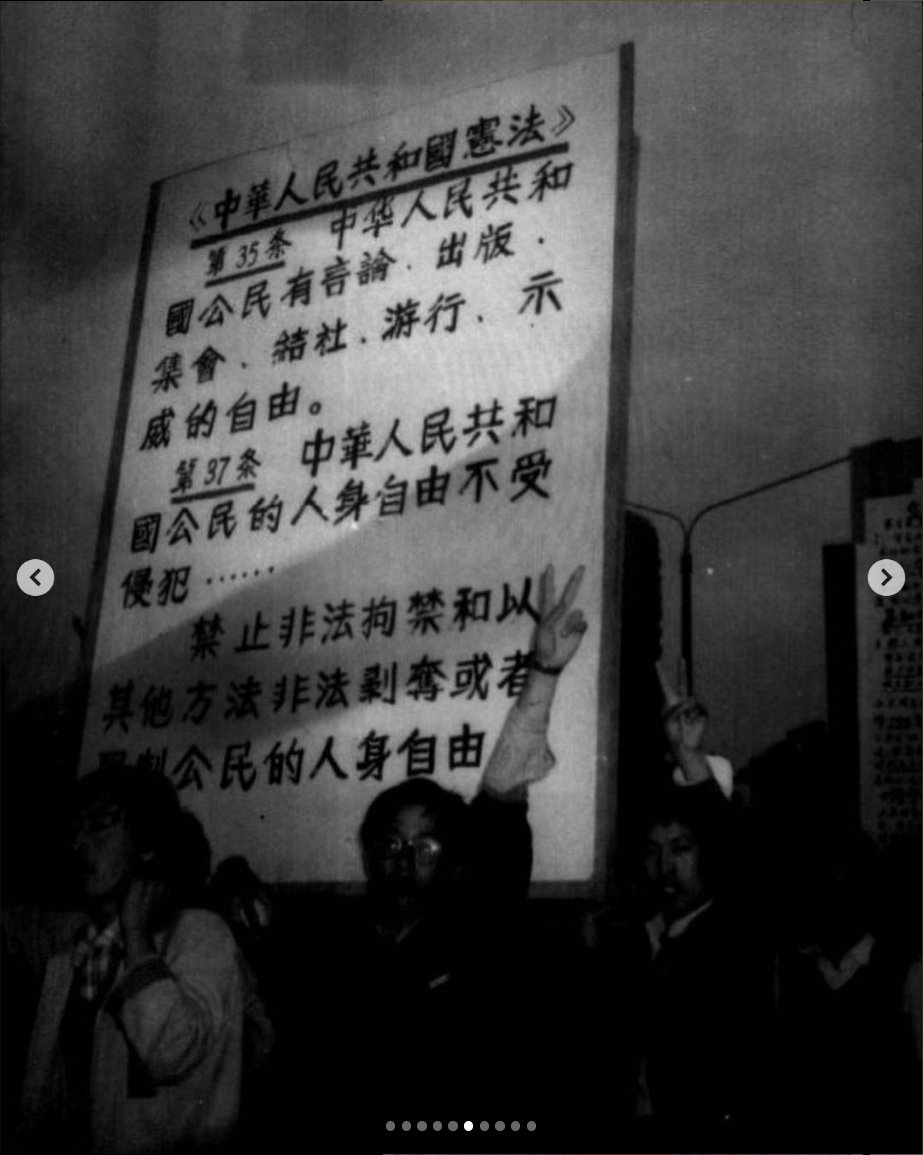 《中華人民共和國憲法》
第35条 中华人民共和
國公民有言論、出版、
集會、結社、游行、示
威的自由。
第37条 中華人民共和
國公民的人身自由不受
侵犯……
禁止非法拘禁和以
其他方法非法剥奪或者
公民的人身自由